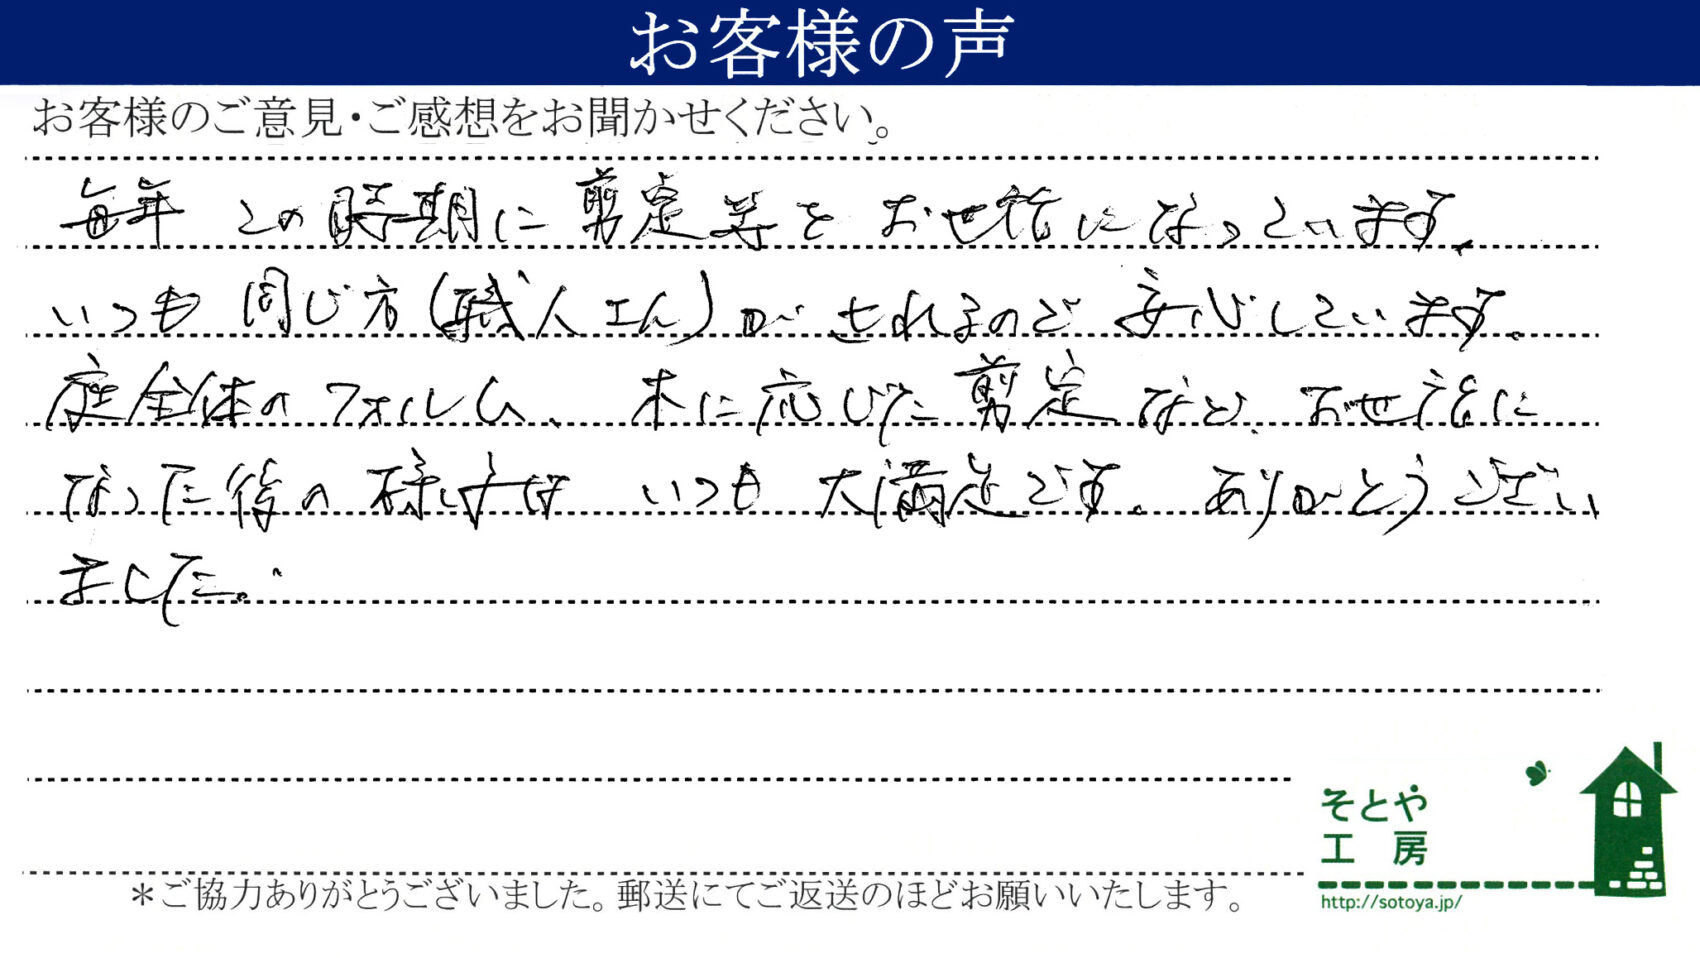 お客様の声
お客様のご意見・ご感想をお聞かせください。
毎年 この時期に 剪定等を お世話になっています。
いつも 同じ方(職人さん)が されるので 安心しています。
庭全体の フォルム、 木に応じた 剪定など、お世話に
なった後の 様子は いつも 大満足です。 ありがとうござい
ました。
そとや
工房
http://sotoya.jp/
＊ご協力ありがとうございました。郵送にてご返送のほどお願いいたします。